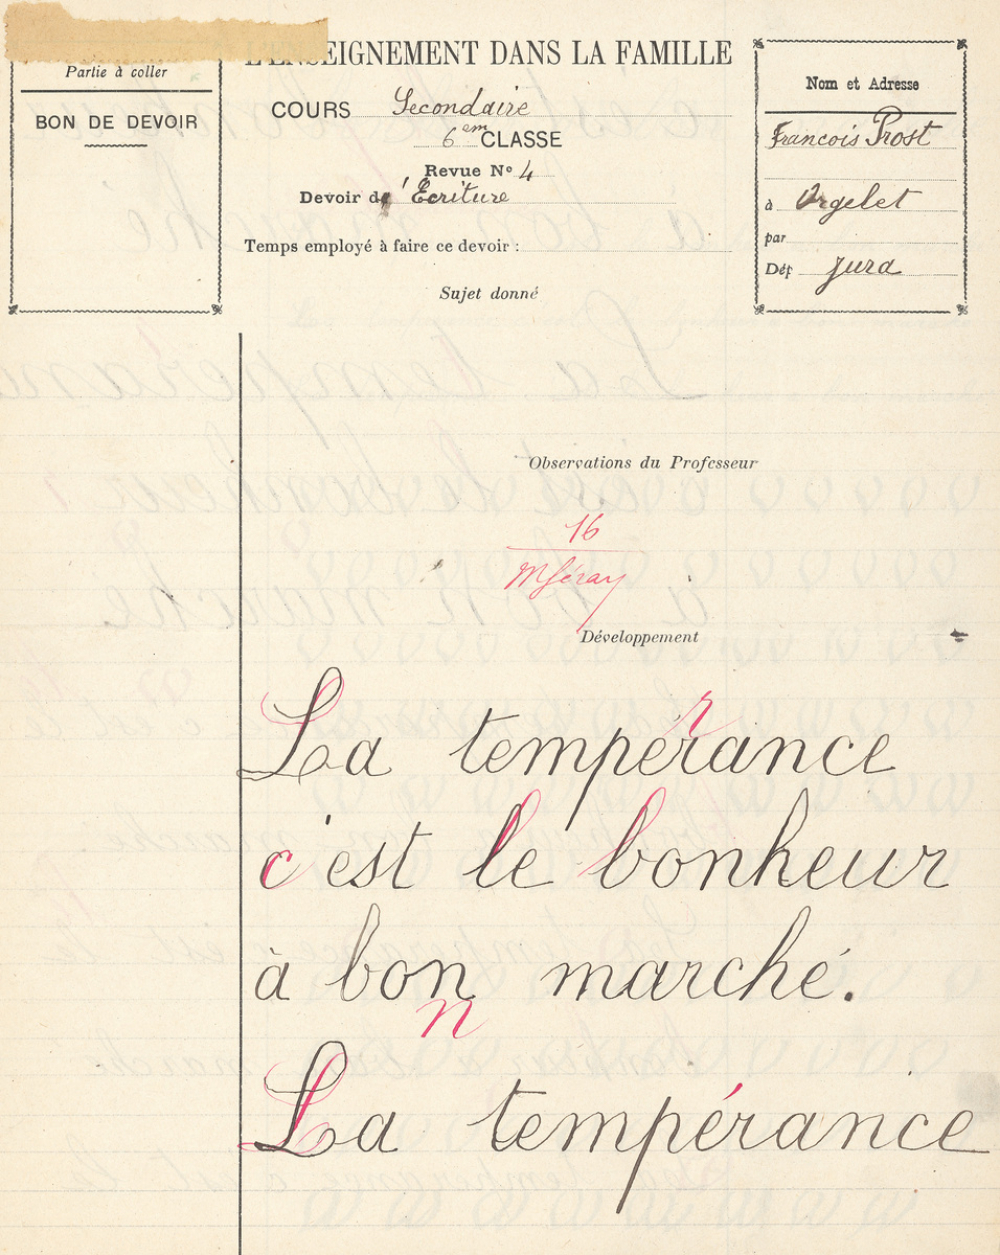 Partie à coller
BON DE DEVOIR
L'ENSEIGNEMENT DANS LA FAMILLE
COURS Secondaire
6em CLASSE
Revue No 4
Devoir de l'Écriture
Temps employé à faire ce devoir :
Sujet donné
Nom et Adresse
Francois Prost
à Orgelet
par
Dép Jura
Observations du Professeur
16
Développement
La tempérance
r
c'est le bonheur
à bon marché.
n
La tempérance